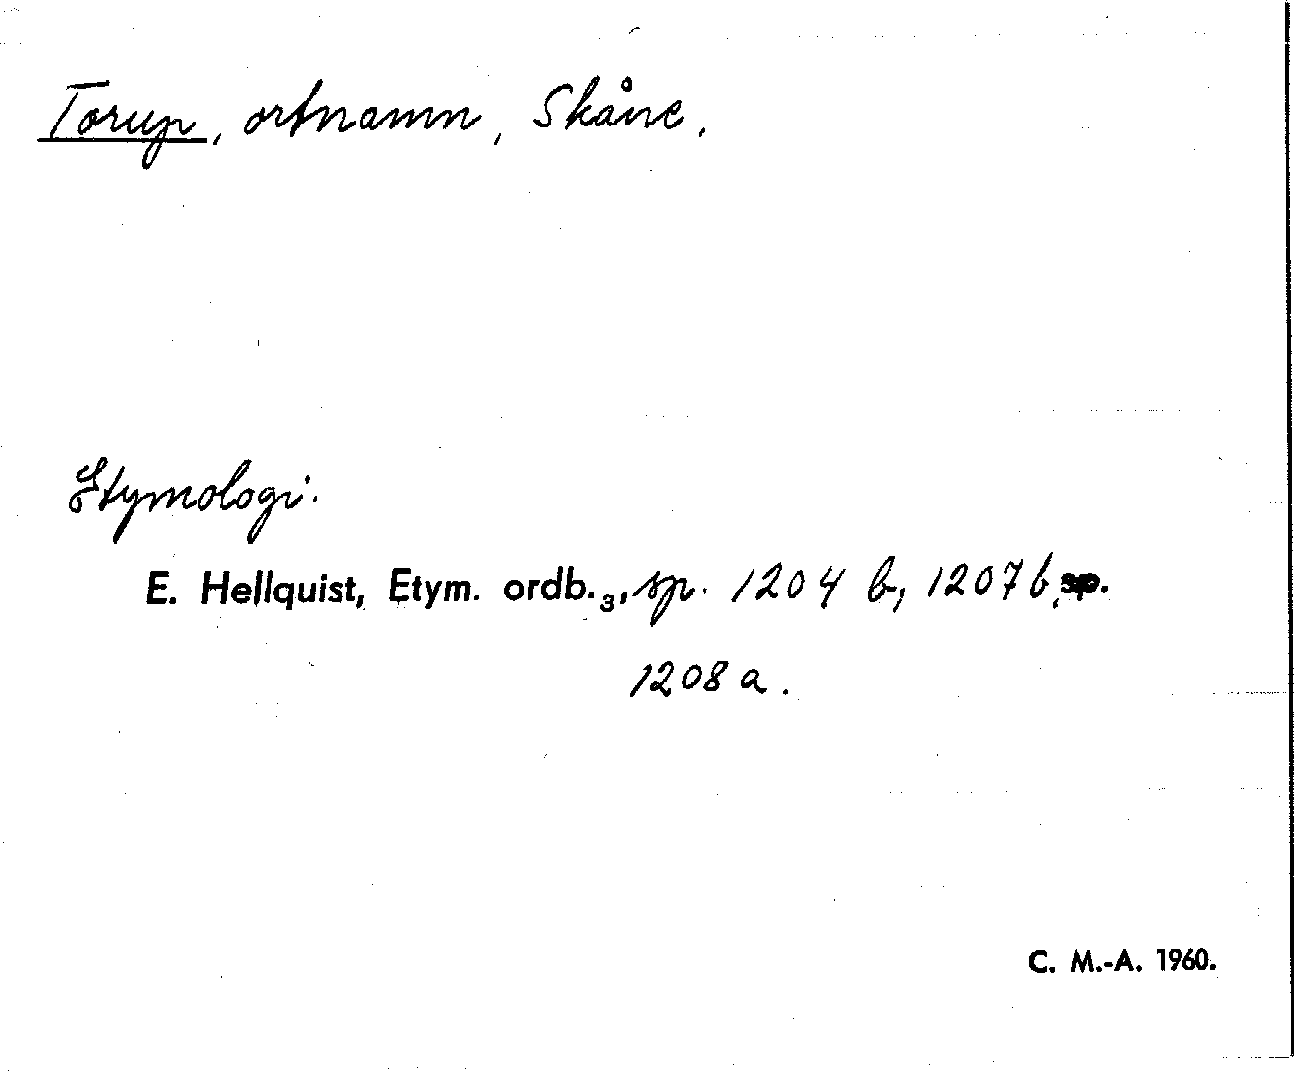 Torup, ortnamn, Skåne.
Etymologi.
E. Hellquist, Etym. ordb.₃, sp. 1204 b, 1207 b, sp.
1208 a.
C. M.-A. 1960.